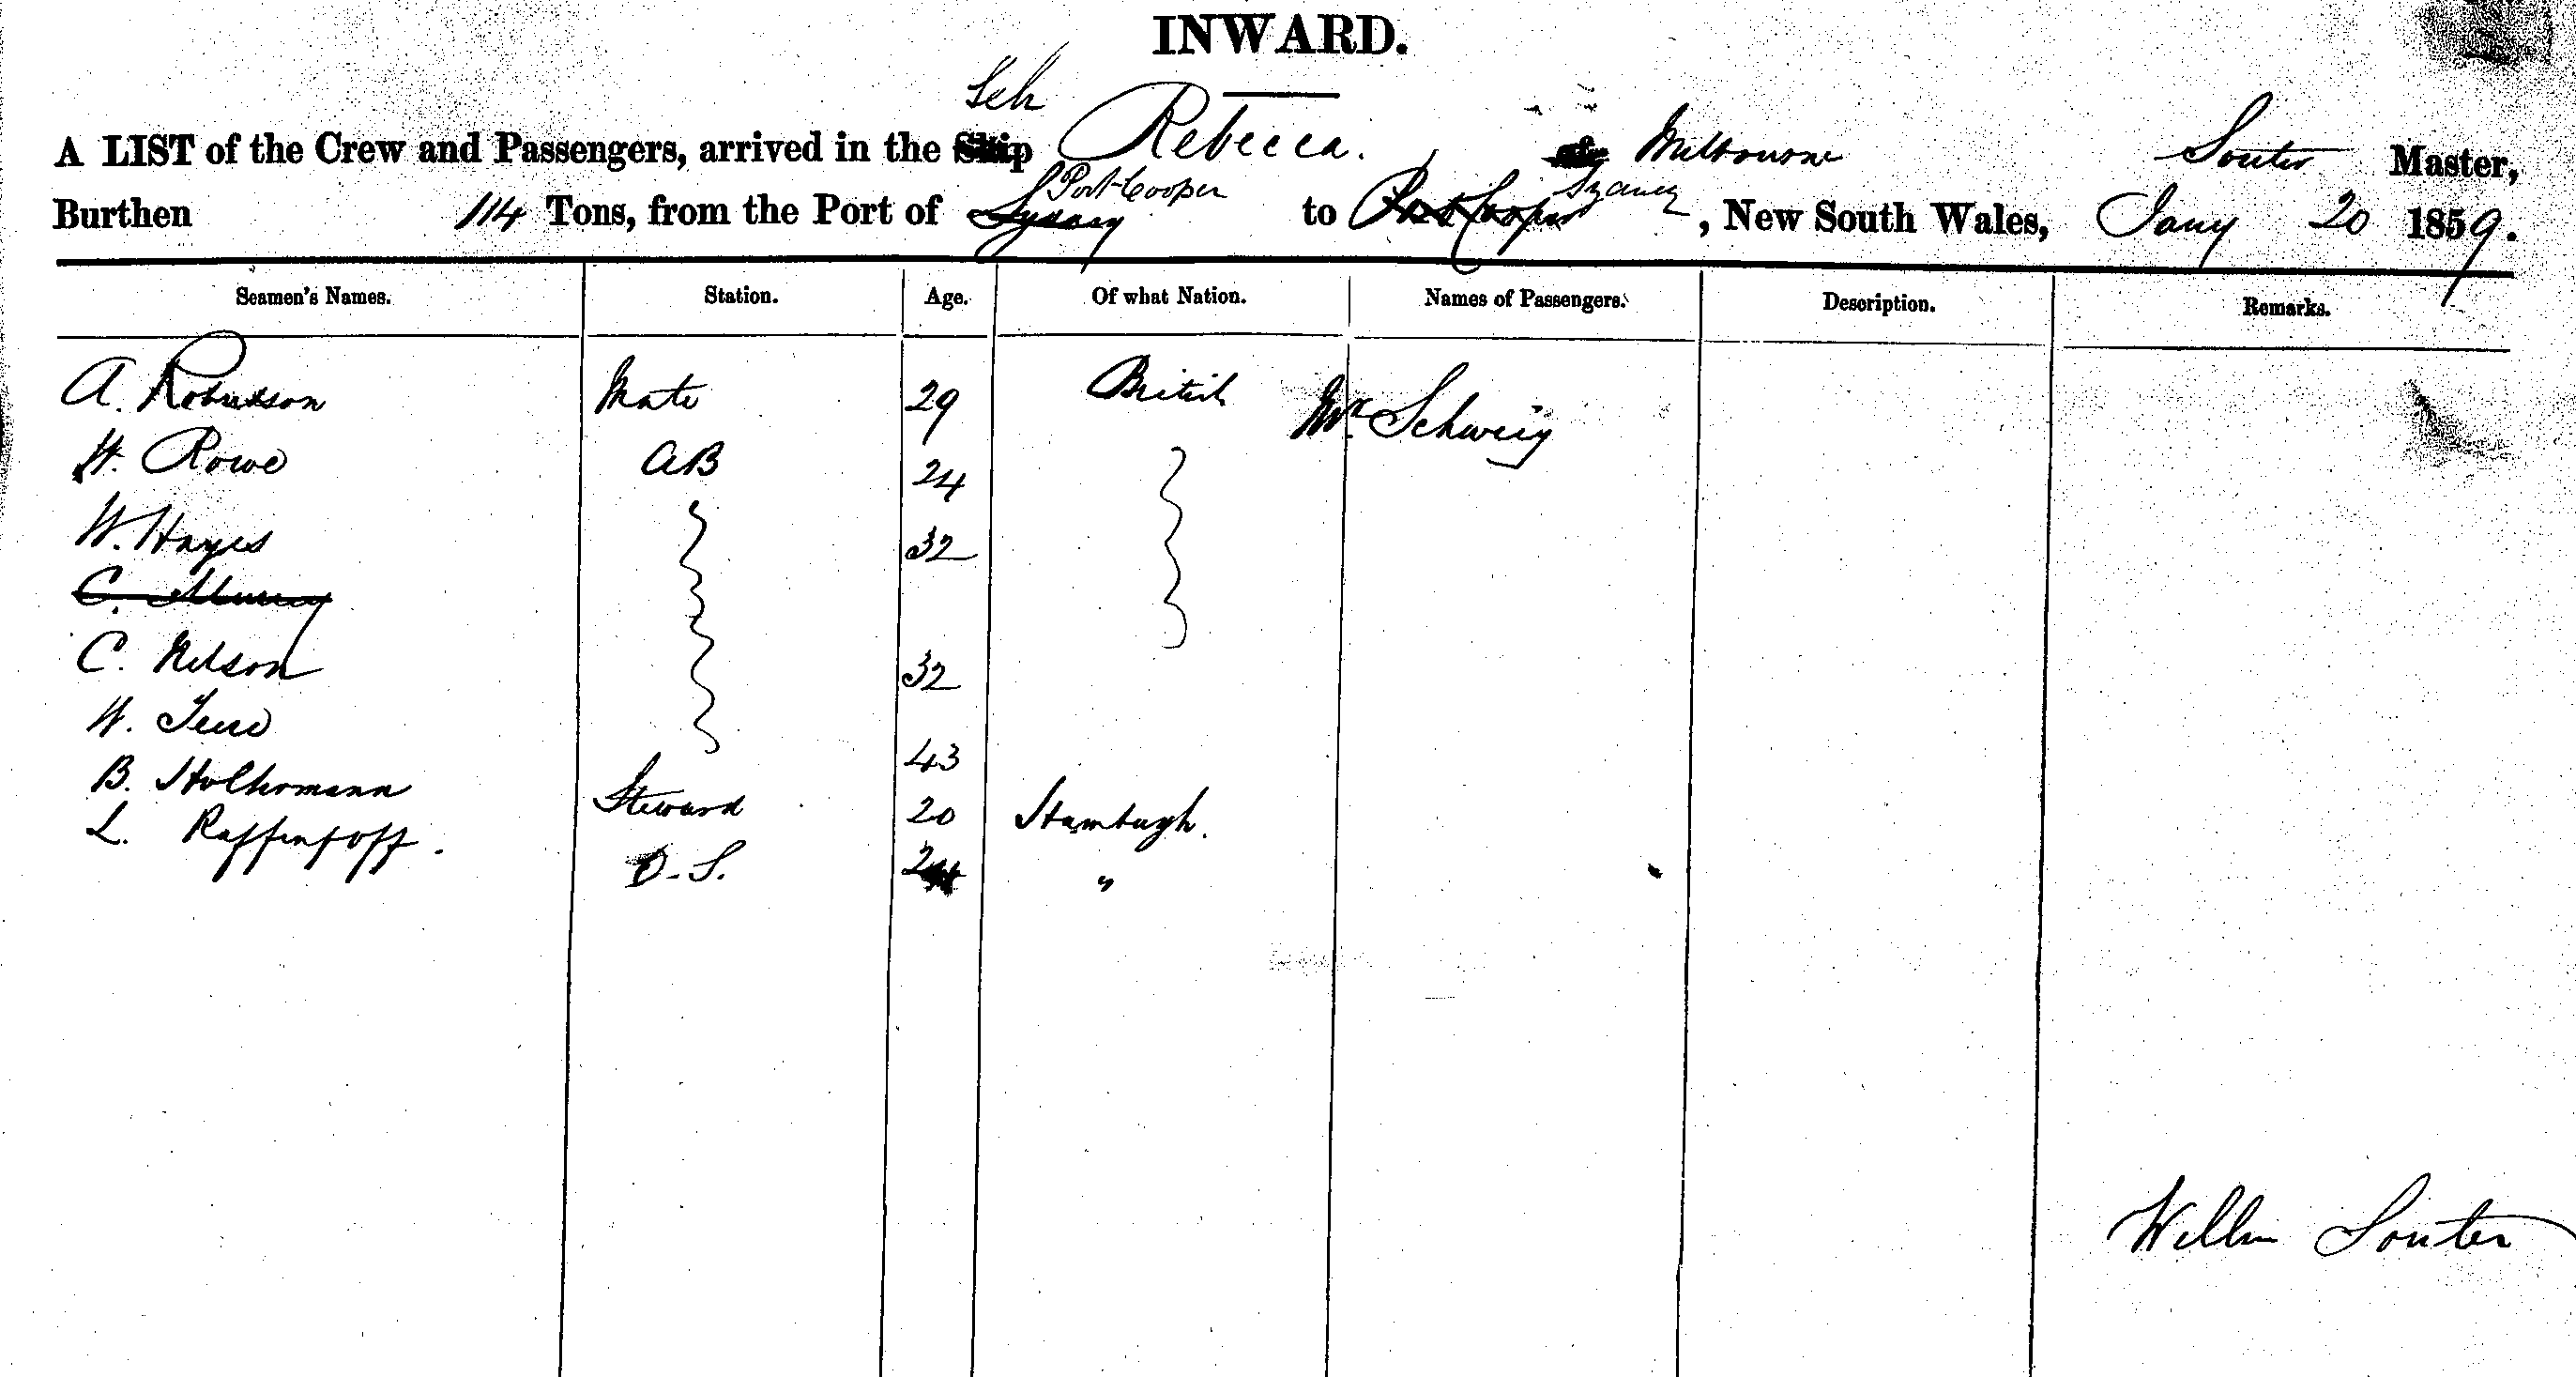 INWARD.
Sch
A LIST of the Crew and Passengers, arrived in the Ship Rebecca. of Melbourne Souter Master,
Port Cooper Sydney
Burthen 114 Tons, from the Port of Sydney to Port Cooper, New South Wales, Jany 20 1859.
Seamen's Names. Station. Age. Of what Nation. Names of Passengers. Description. Remarks.
A. Robertson Mate 29 British Mr. Schweig
H. Rowe AB 24
W. Hayes 32
C. Murray
C. Nelson 32
W. 43
B. Holthomann Steward 20 Hamburgh.
L. O.S. 24 "
Willm Souter